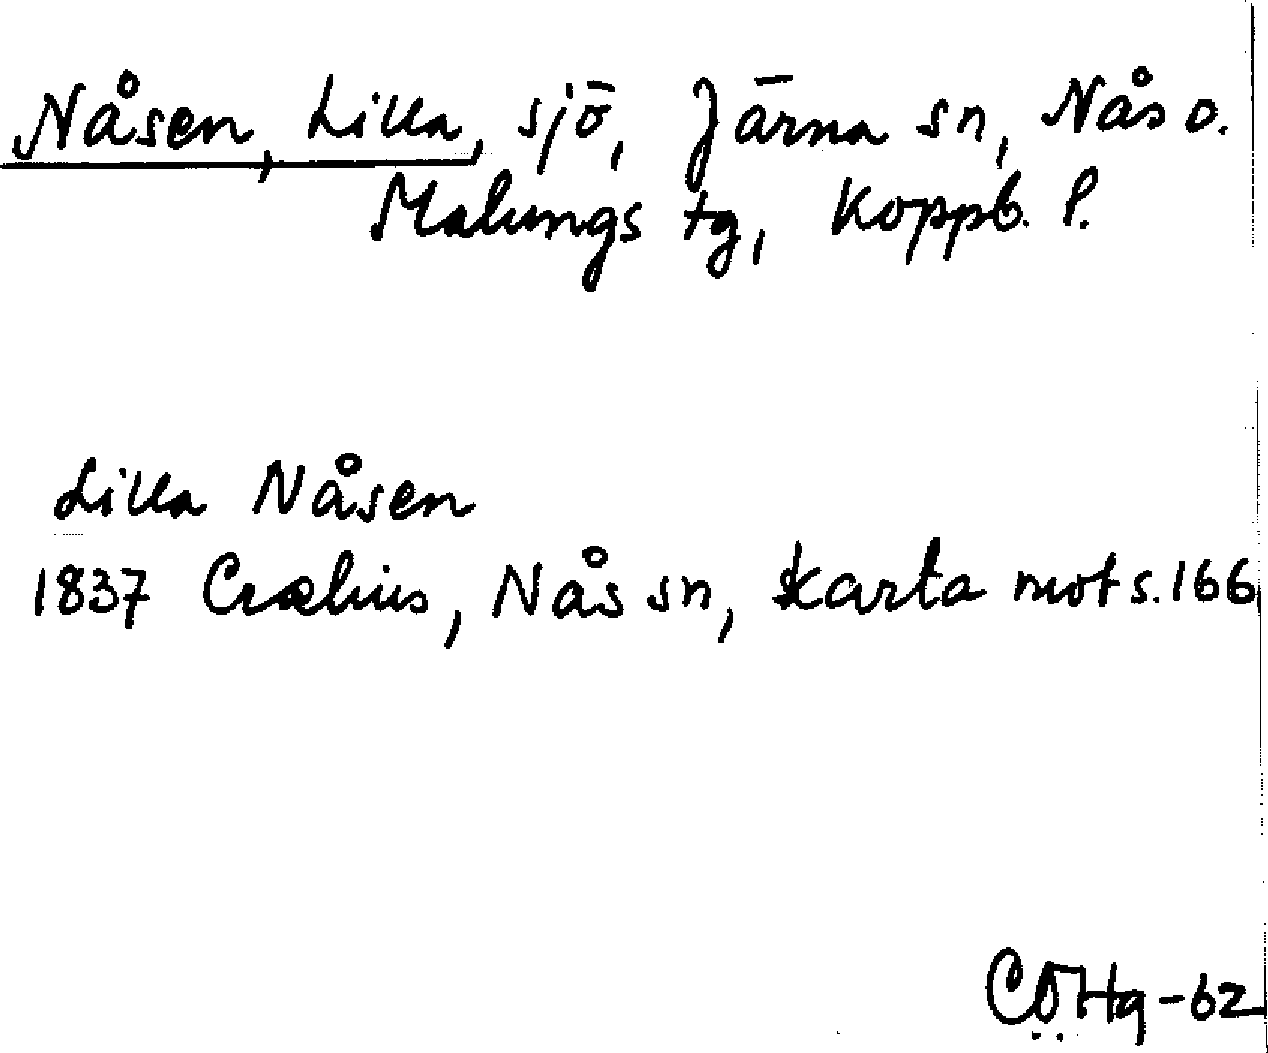 Nåsen, Lilla, sjö, Järna sn, Nås o.
Malungs tg, Koppb. l.
Lilla Nåsen
1837 Crælius, Nås sn, karta mot s. 166
-62